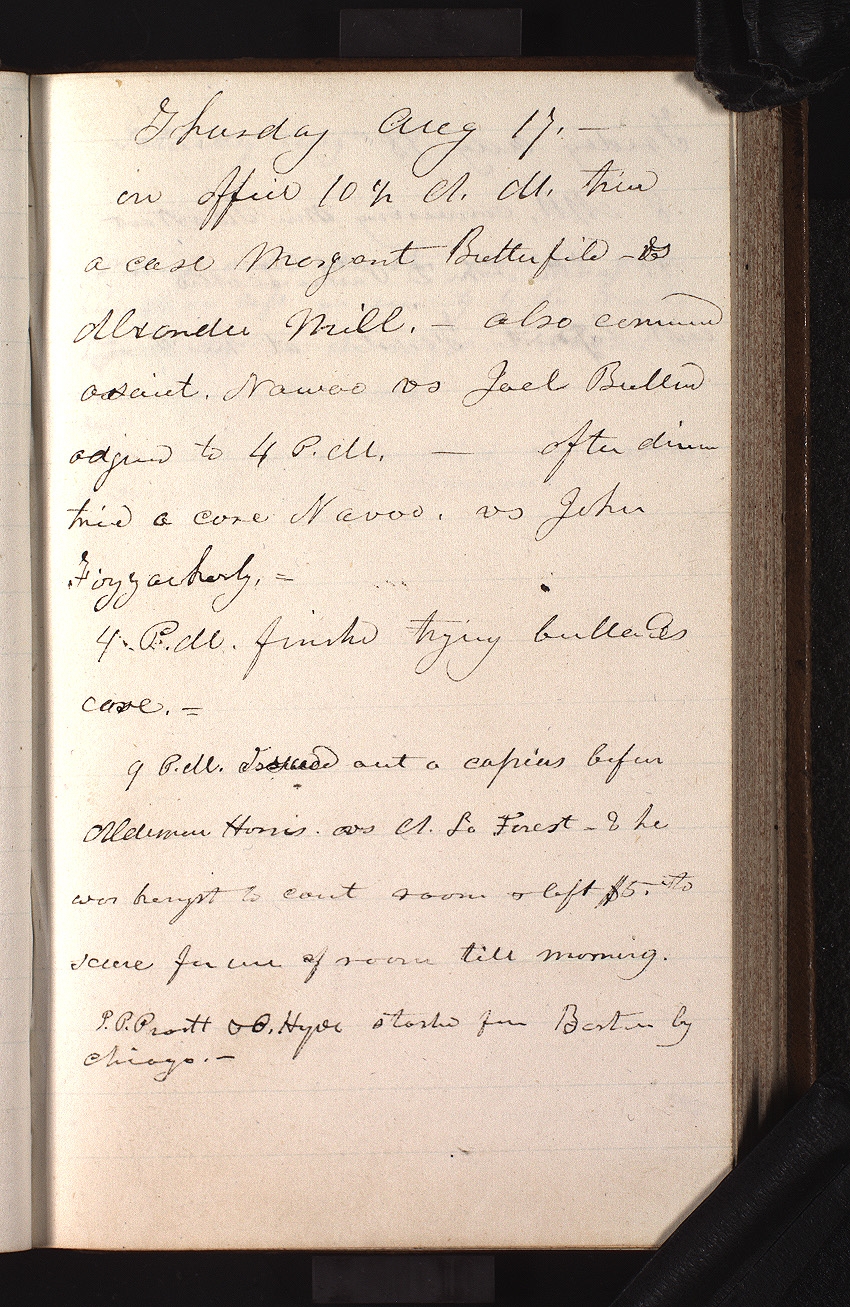 Thursday Aug 17. —
in office 10 ½ A. M. tried
a case Margant Butterfild — vs
Alxander Mill. — also commned
assault. Nawoo vs Joel Bullard
adjnd to 4 P. M. — after dinner
tried a case Navoo. vs John
Fizzacherly. =
4. P. M. finshd trying bullards
case. =
9 P. M. Issued out a capias before
Alderman Harris. vs A. La Forest — & he
was bought to court room & left $5. to
scure for use of room till morning.
P. P. Pratt & O. Hyde startd for Boston by
Chicago. —